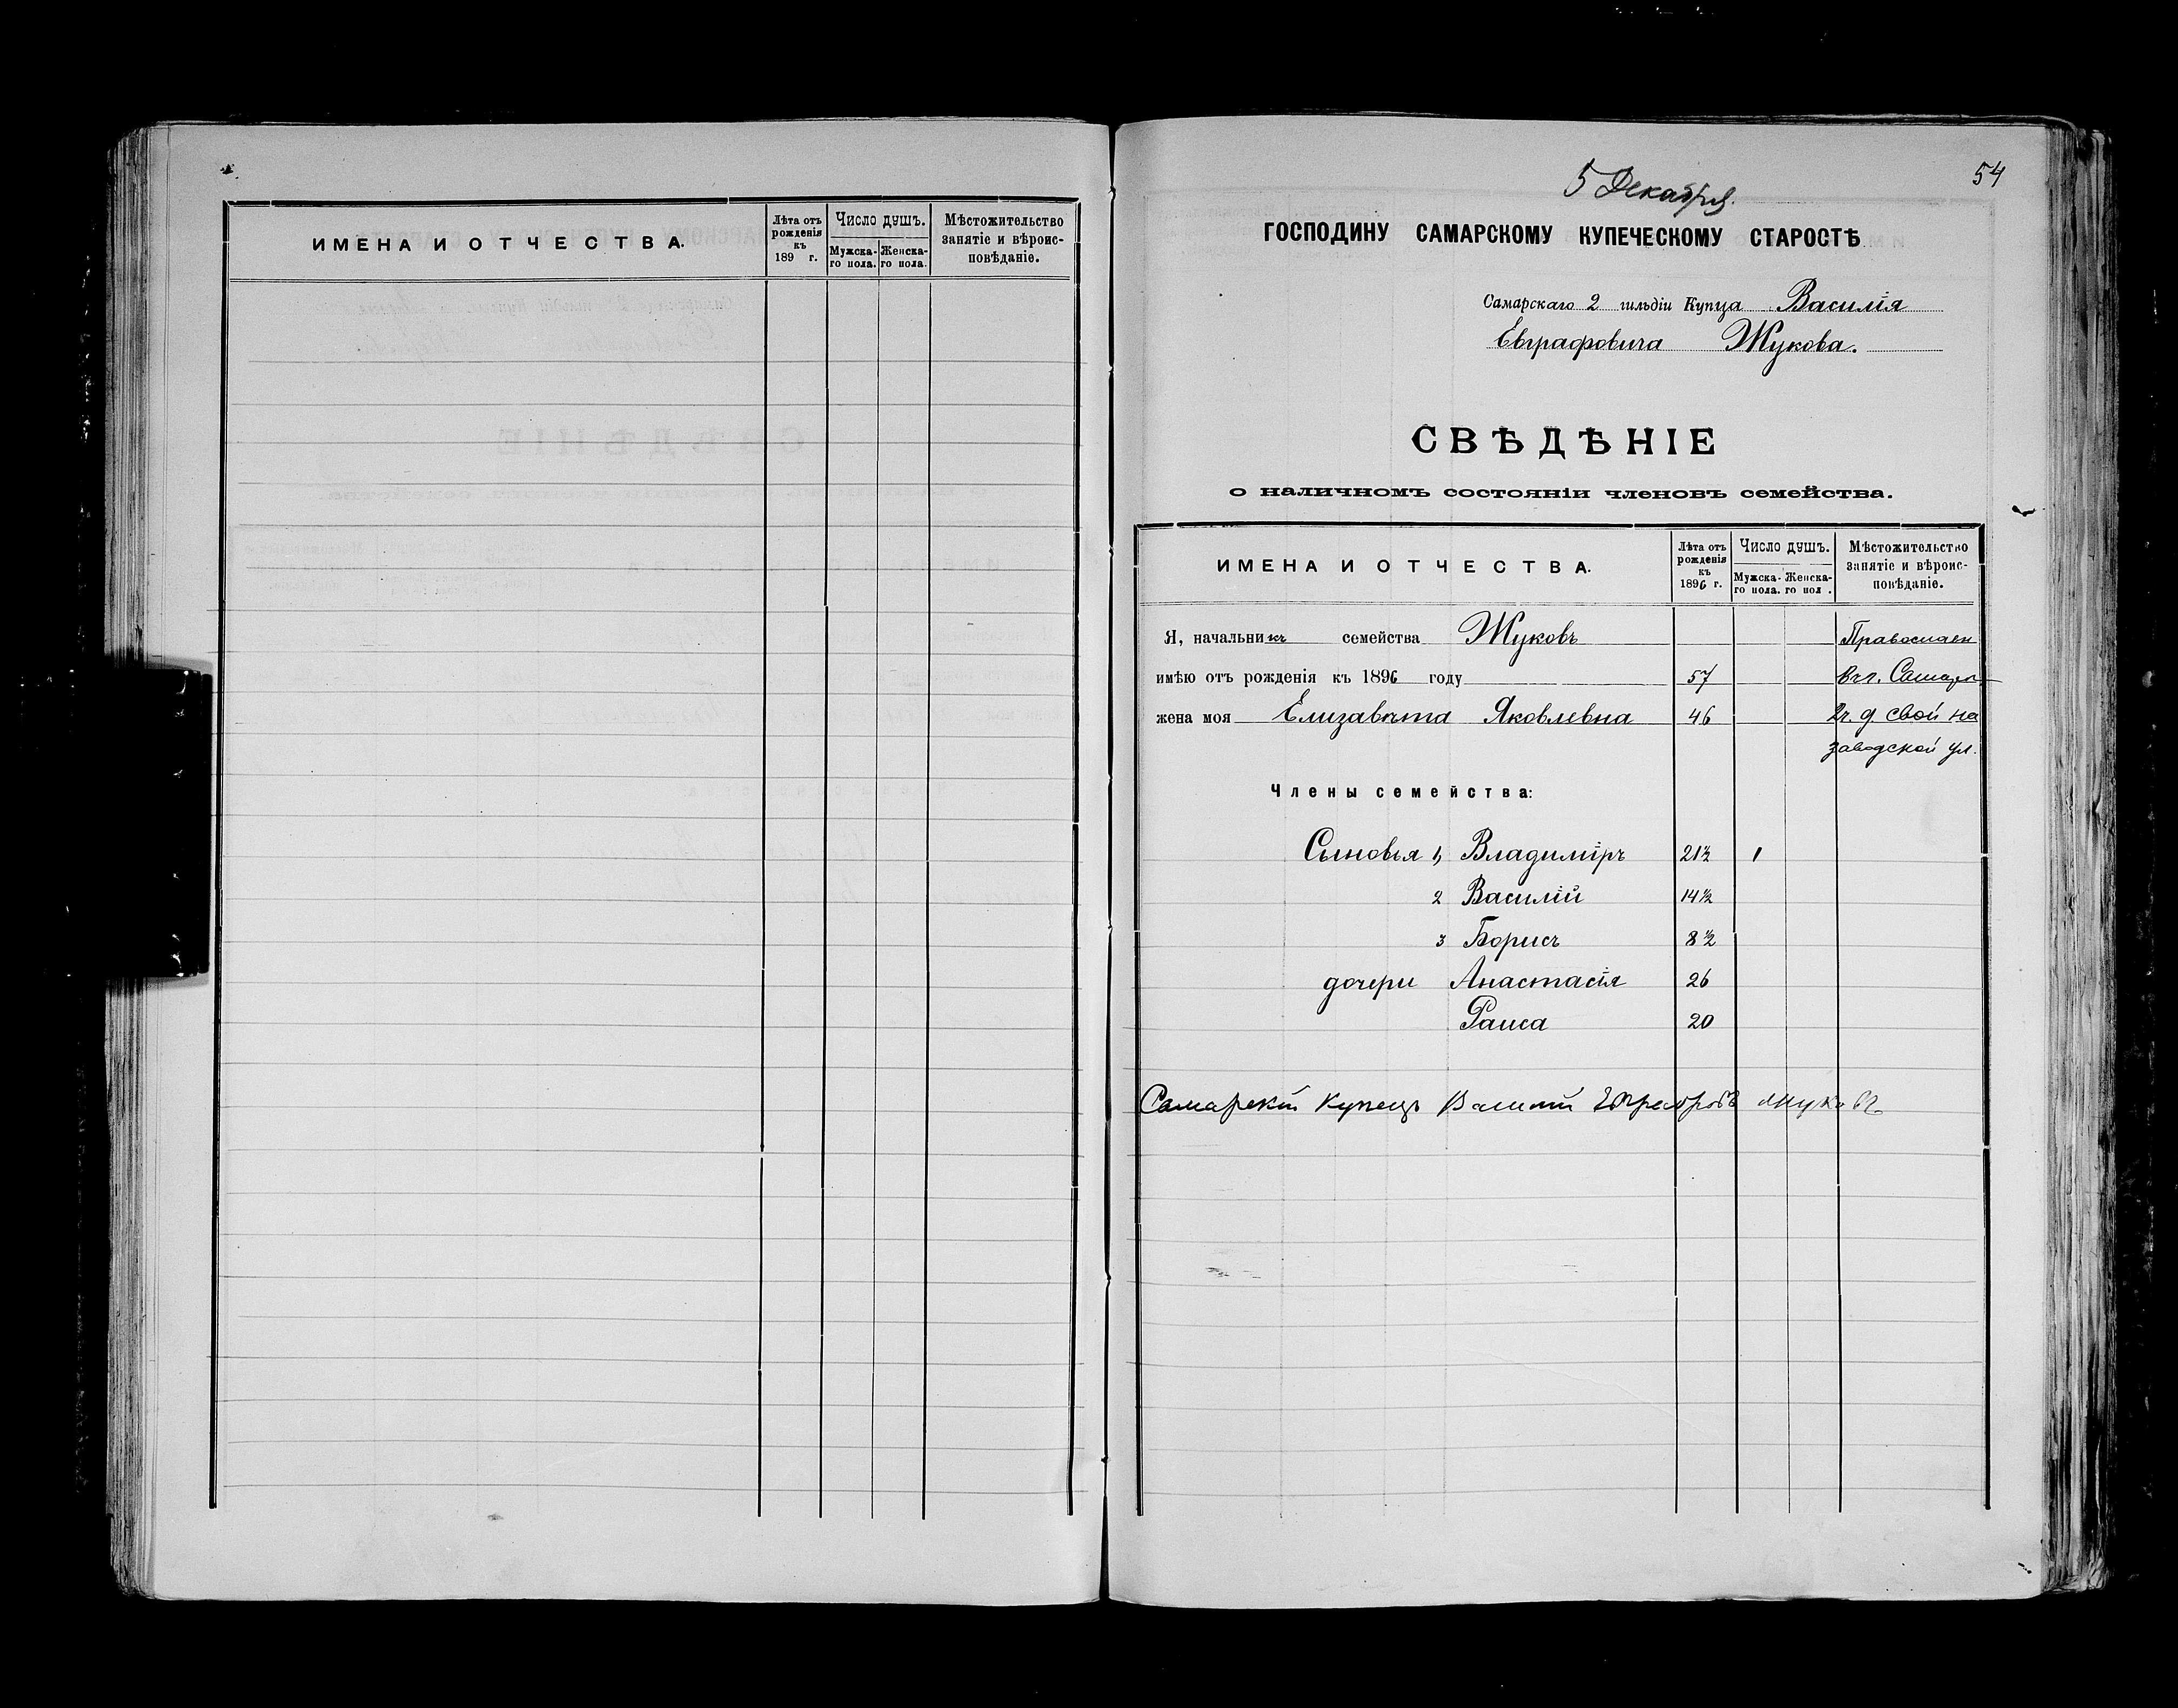 ИМЕНА И ОТЧЕСТВА.
Лѣта отъ рожденія къ 189 г.
Число душъ.
Мужска-го пола.
Женска-го пола.
Мѣстожительство занятіе и вѣроис-повѣданіе.
54
5 Декабря.
ГОСПОДИНУ САМАРСКОМУ КУПЕЧЕСКОМУ СТАРОСТѢ
Самарскаго 2 гильдіи Купца Василія
Евграфовича Жукова.
СВѢДѢНІЕ
о наличномъ состояніи членовъ семейства.
ИМЕНА И ОТЧЕСТВА.
Лѣта отъ рожденія къ 1896 г.
Число душъ.
Мужска-го пола.
Женска-го пол .
Мѣстожительство занятіе и вѣроис-повѣданіе.
Я, начальникъ семейства Жуковъ Православн
имѣю отъ рожденія къ 1896 году 57 въ г. Самарѣ
жена моя Елизавѣта Яковлевна 46 2 ч. д. свой на
заводской ул.
Члены семейства:
Сыновья 1) Владиміръ 21½ 1
2 Василій 14½
3 Борисъ 8½
дочери Анастасія 26
Раиса 20
Самарскій Купецъ Василій Евграфовъ Жуковъ